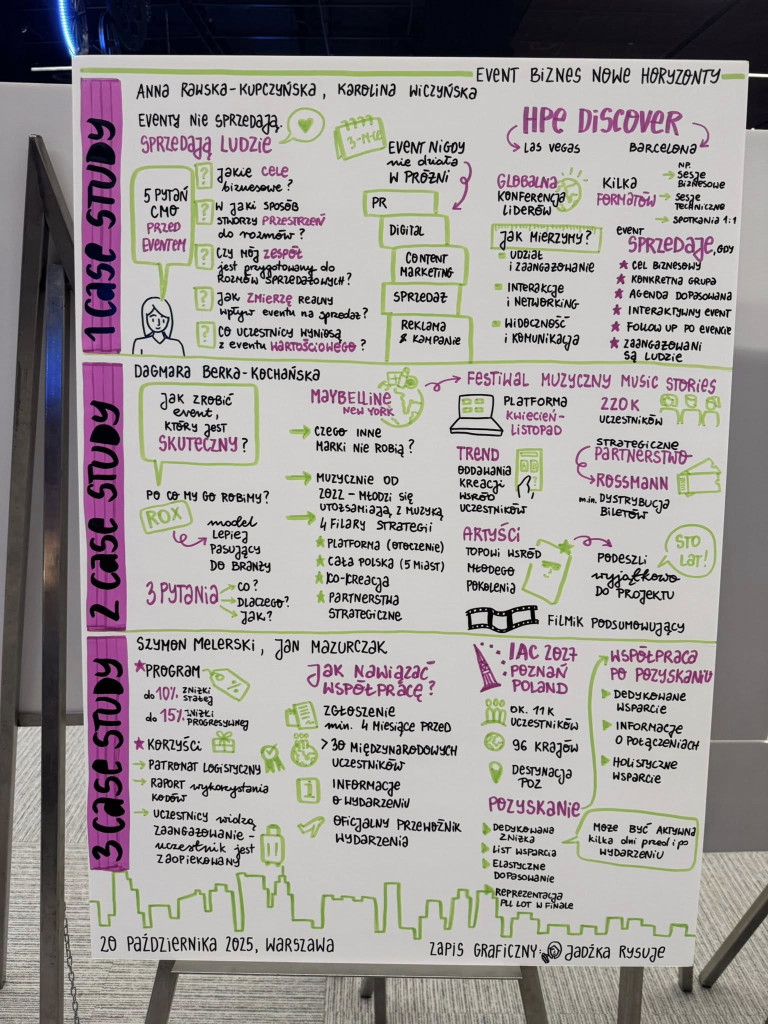 EVENT BIZNES NOWE HORYZONTY
1 CASE STUDY
ANNA RAWSKA-KUPCZYŃSKA, KAROLINA WICZYŃSKA
EVENTY NIE SPRZEDAJĄ.
SPRZEDAJĄ LUDZIE
5 PYTAŃ
CMO
PRZED
EVENTEM
? JAKIE CELE
biznesowe?
? W JAKI SPOSÓB
STWORZY PRZESTRZEŃ
do rozmów?
? CZY MÓJ ZESPÓŁ
jest przygotowany do
ROZMÓW SPRZEDAŻOWYCH?
? JAK ZMIERZĘ REALNY
wpływ eventu na sprzedaż?
? CO UCZESTNICY WYNIOSĄ
z eventu WARTOŚCIOWEGO?
EVENT NIGDY
nie działa
W PRÓŻNI
PR
DIGITAL
CONTENT
MARKETING
SPRZEDAŻ
REKLAMA
& KAMPANIE
HPE DISCOVER
LAS VEGAS
BARCELONA
GLOBALNA
KONFERENCJA
LIDERÓW
KILKA
FORMATÓW
NP.
SESJE
BIZNESOWE
SESJE
TECHNICZNE
SPOTKANIA 1:1
JAK MIERZYMY?
UDZIAŁ
I ZAANGAŻOWANIE
INTERAKCJE
I NETWORKING
WIDOCZNOŚĆ
I KOMUNIKACJA
EVENT
SPRZEDAJE, GDY
CEL BIZNESOWY
KONKRETNA GRUPA
AGENDA DOPASOWANA
INTERAKTYWNY EVENT
FOLLOW UP PO EVENCIE
ZAANGAŻOWANI
SĄ LUDZIE
2 CASE STUDY
DAGMARA BERKA-KOCHAŃSKA
JAK ZROBIĆ
event,
KTÓRY JEST
SKUTECZNY?
PO CO MY GO ROBIMY?
ROX
model
LEPIEJ
PASUJĄCY
DO BRANŻY
3 PYTANIA
CO?
DLACZEGO?
JAK?
MAYBELLINE
NEW YORK
CZEGO INNE
MARKI NIE ROBIĄ?
MUZYCZNIE OD
2022 – MŁODZI SIĘ
UTOŻSAMIAJĄ Z MUZYKĄ
4 FILARY STRATEGII
PLATFORMA (OTOCZENIE)
CAŁA POLSKA (5 MIAST)
KO-KREACJA
PARTNERSTWA
STRATEGICZNE
FESTIWAL MUZYCZNY MUSIC STORIES
PLATFORMA
KWIECIEŃ-
LISTOPAD
220K
UCZESTNIKÓW
TREND
ODDAWANIA
KREACJI
WŚRÓD
UCZESTNIKÓW
STRATEGICZNE
PARTNERSTWO
ROSSMANN
m.in. DYSTRYBUCJA
BILETÓW
ARTYŚCI
TOPOWI WŚRÓD
MŁODEGO
POKOLENIA
PODESZLI
wyjątkowo
DO PROJEKTU
STO
LAT!
FILMIK PODSUMOWUJĄCY
3 CASE STUDY
SZYMON MELERSKI, JAN MAZURCZAK
PROGRAM
do 10% ZNIŻKI
STAŁEJ
do 15% ZNIŻKI
PROGRESYWNEJ
KORZYŚCI
PATRONAT LOGISTYCZNY
RAPORT wykorzystania
KODÓW
UCZESTNICY WIDZĄ
ZAANGAŻOWANIE –
uczestnik jest
ZAOPIEKOWANY
JAK NAWIĄZAĆ
WSPÓŁPRACĘ?
ZGŁOSZENIE
min. 4 MIESIĄCE PRZED
> 30 MIĘDZYNARODOWYCH
UCZESTNIKÓW
INFORMACJE
O WYDARZENIU
OFICJALNY PRZEWOŹNIK
WYDARZENIA
IAC 2027
POZNAŃ
POLAND
OK. 11K
UCZESTNIKÓW
96 KRAJÓW
DESTYNACJA
POZ
POZYSKANIE
DEDYKOWANA
ZNIŻKA
LIST WSPARCIA
ELASTYCZNE
DOPASOWANIE
REPREZENTACJA
PLL LOT W FINALE
WSPÓŁPRACA
PO POZYSKANIU
DEDYKOWANE
WSPARCIE
INFORMACJE
O POŁĄCZENIACH
HOLISTYCZNE
WSPARCIE
MOŻE BYĆ AKTYWNA
kilka dni przed i po
WYDARZENIU
20 PAŹDZIERNIKA 2025, WARSZAWA
ZAPIS GRAFICZNY: JADŹKA RYSUJE